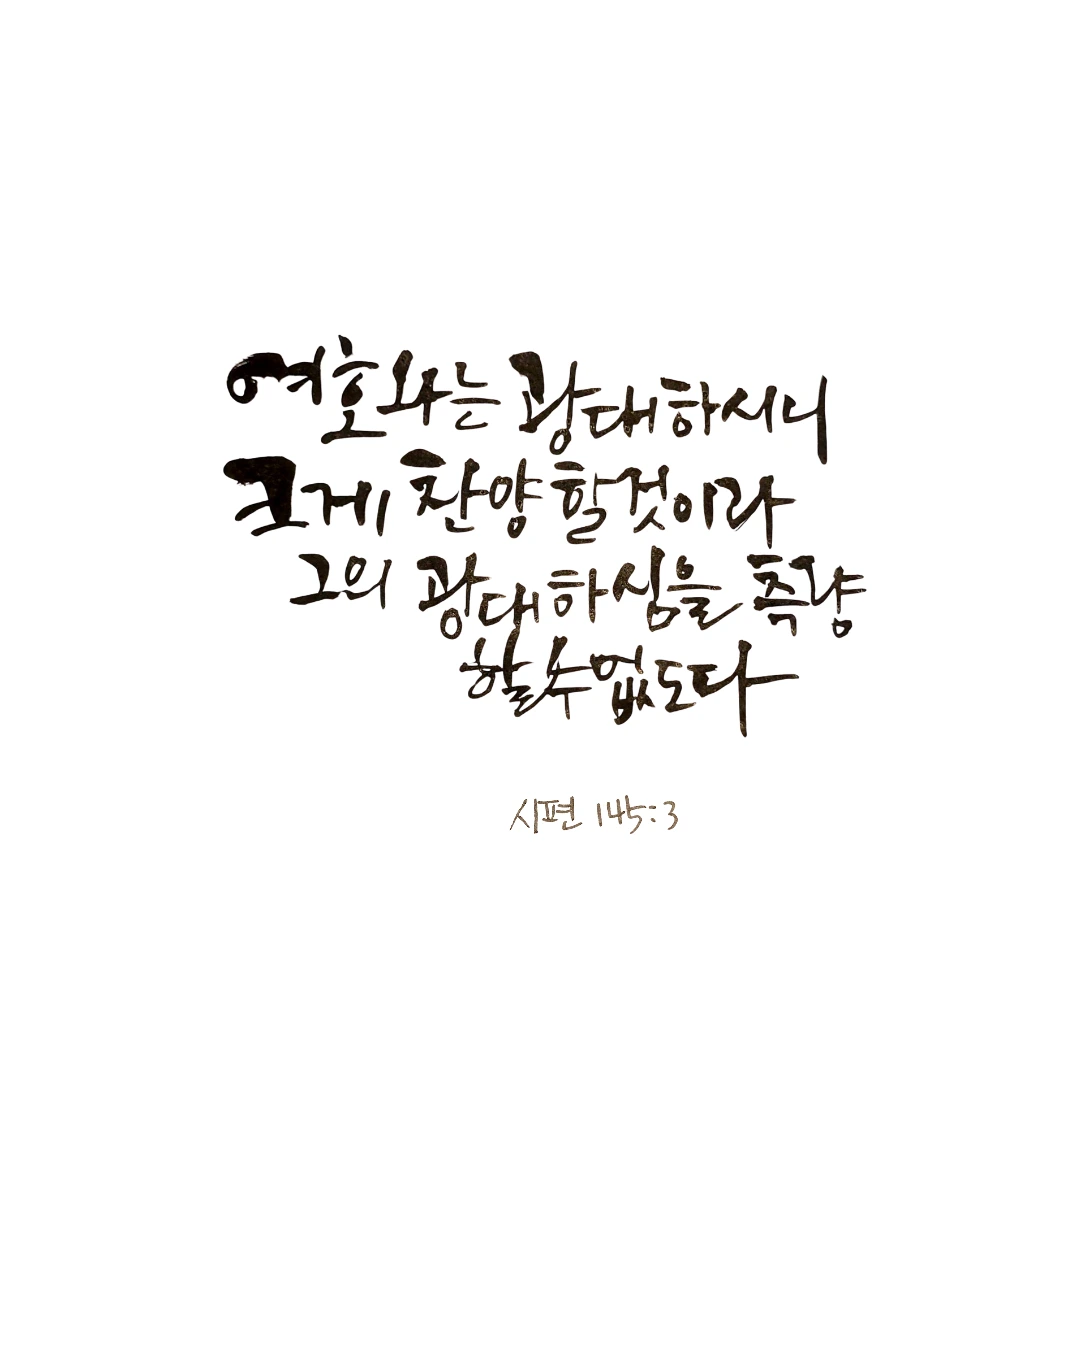 여호와는 광대하시니
크게 찬양할것이라
그의 광대하심을 측량
할수없도다
시편 145:3